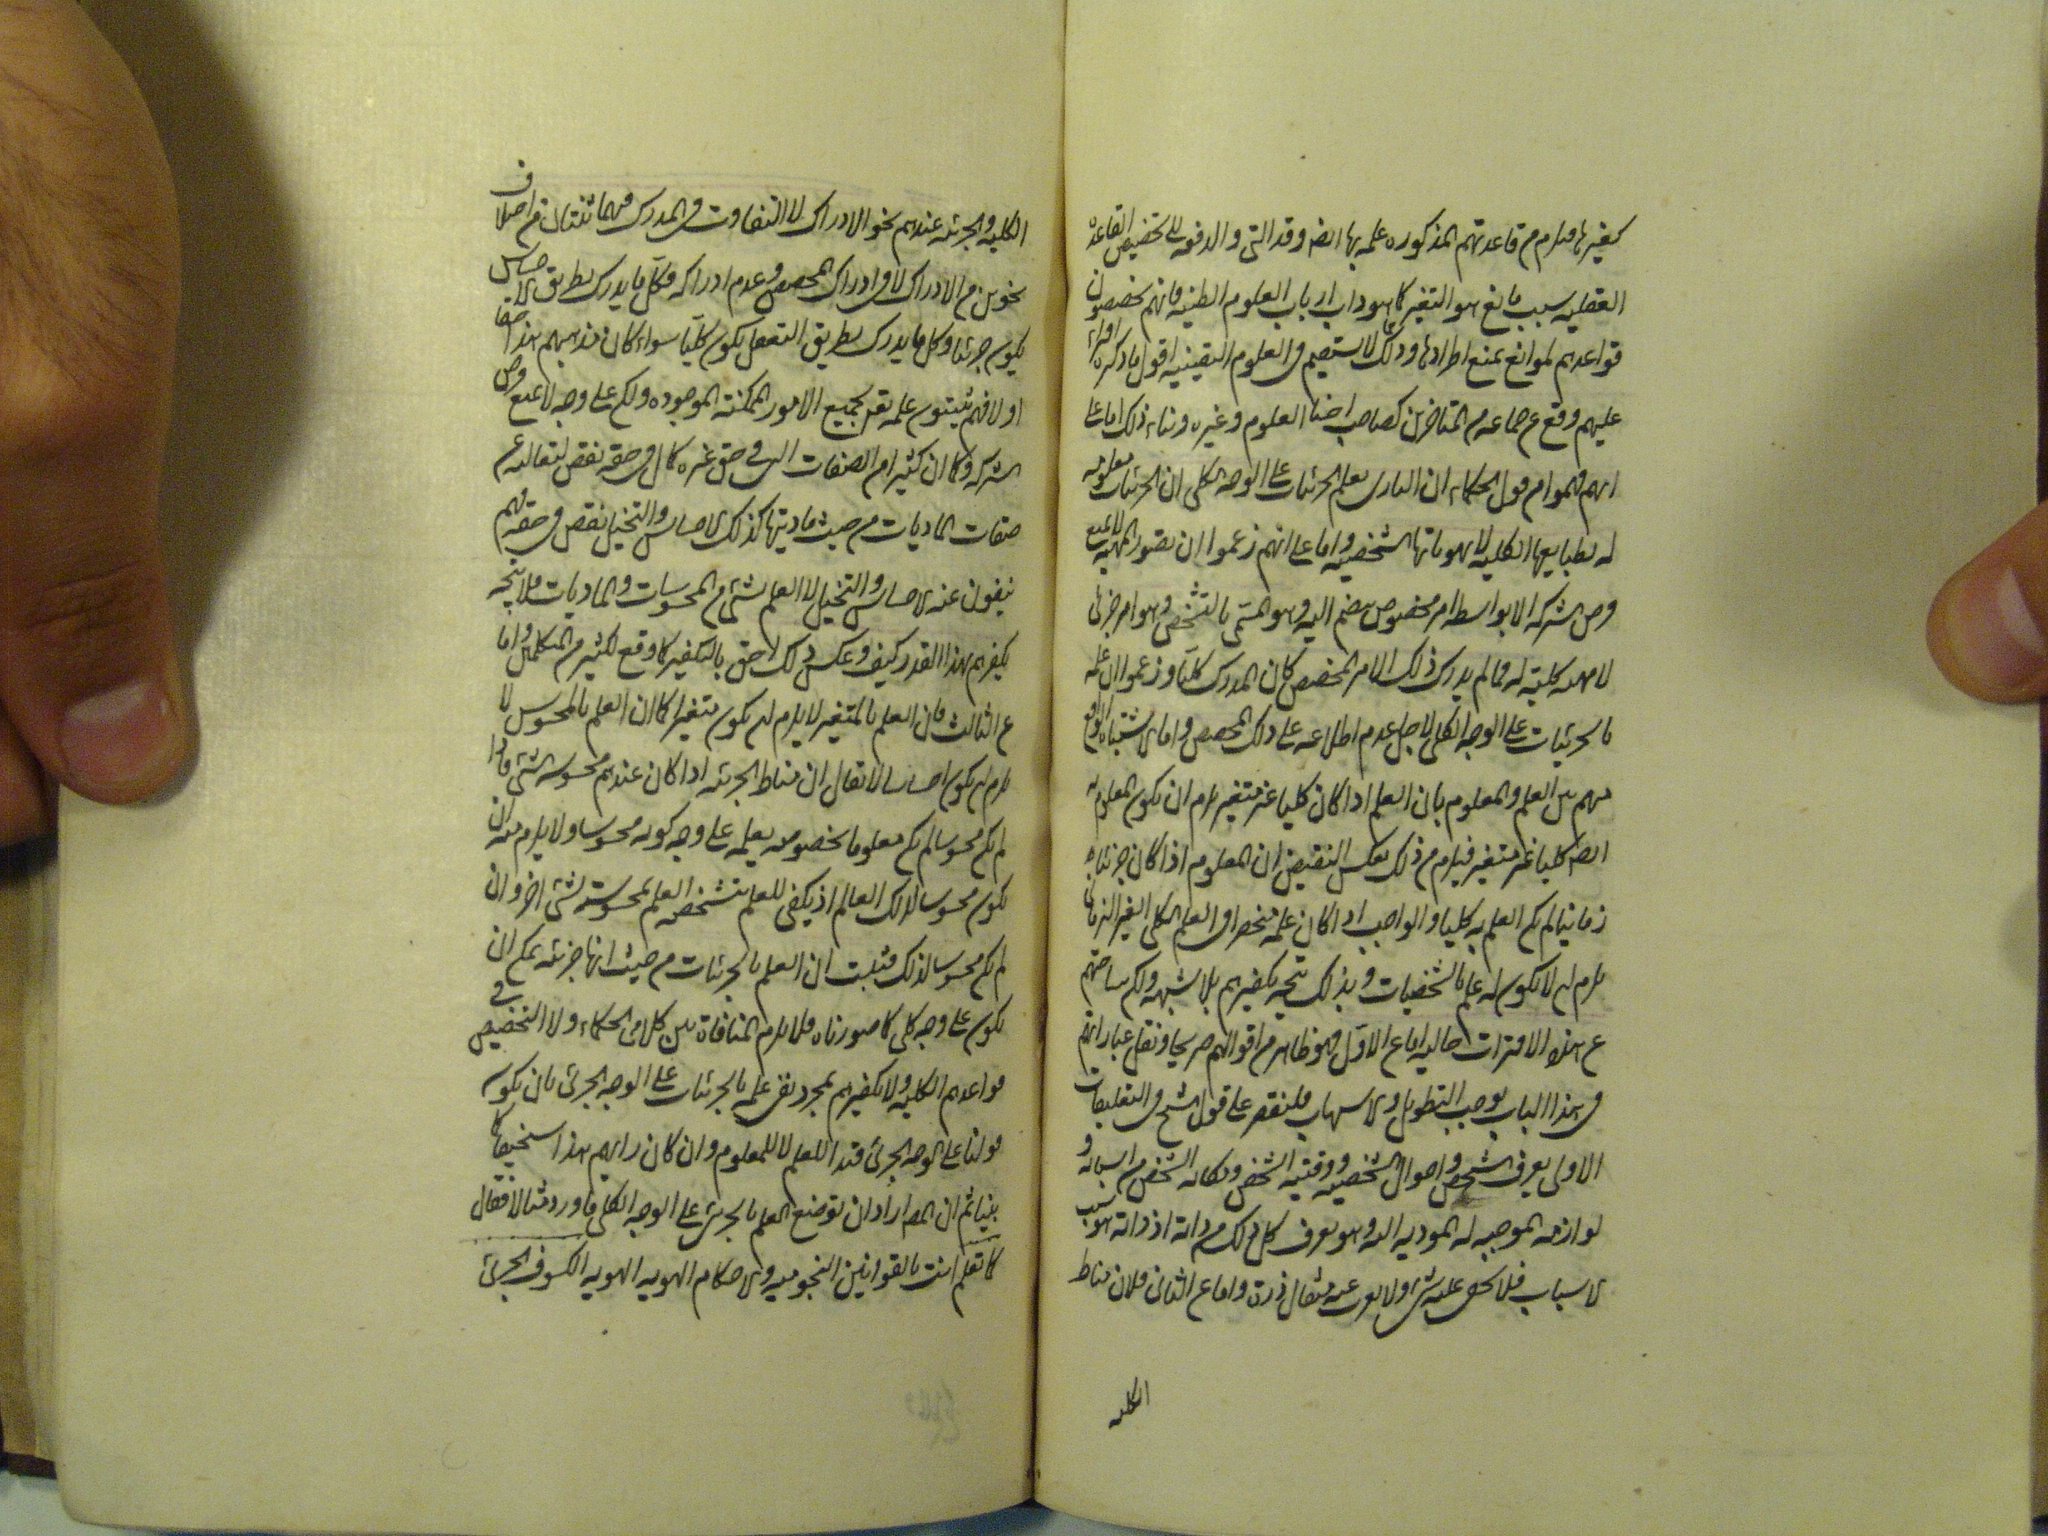 كغيرها فيلزم من قاعدتهم المذكوره علمه بها ايضا وقد التجٔوا لدفعه الى تخصيص القاعدة
العقليه بسبب مانع هو التغير كما هو داب ارباب العلوم الظنيه فانهم يخصصون
قواعدهم لموانع تمنع اطرادها وذلك لا يستقيم فى العلوم اليقينيه اقول ما ذكره افتراء
عليهم وقع عن جماعه من المتاخرين كصاحب احياء العلوم وغيره وبناء ذلك اما على
انهم فهموا من قول الحكماء ان البارى يعلم الجزئيات على الوجه الكلى ان الجزئيات معلومه
له بطبايعها الكليه لا بهوياتها الشخصيه واما على انهم زعموا ان تصور المهيه لا يمنع
فرض الشركه الا بواسطه امر مخصوص ينضم اليه وهو المسمى بالتشخص وهو امر جزئى
لا مهيه كليه له فما لم يدرك ذلك الامر المخصص كان المدرك كليا وزعموا ان علمه
بالجزئيات على الوجه الكلى لاجل عدم اطلاعه على ذلك المخصص واما لاشتباه الواقع
منهم بين العلم والمعلوم بان العلم اذا كان كليا غير متغير يلزم ان يكون المعلوم به
ايضا كليا غير متغير فيلزم من ذلك بعكس النقيض ان المعلوم اذا كان جزئيا
زمانيا لم يكن العلم به كليا والواجب اذا كان علمه منحصرا فى العلم الكلى الغير الزمانى
يلزم ان لا يكون له علم بالشخصيات وبذلك يتجه تكفيرهم بلا شبهه ولكن ساحتهم
عن هذه الافتراءات خاليه اما عن الاول فهو ظاهر من اقوالهم صريحا ونقل عباراتهم
فى هذا الباب يوجب التطويل والاسهاب فلنقتصر على قول الشيخ فى التعليقات
الاول يعرف الشخص واحواله الشخصيه ووقته الشخصى ومكانه الشخصى من اسبابه و
لوازمه الموجبه له الموديه اليه وهو يعرف كل ذلك من ذاته اذ ذاته هو سبب
الاسباب فلا يخفى عليه شئ ولا يعزب عنه مثقال ذرة واما عن الثانى فلان مناط
الكليه
الكليه والجزئيه عندهم نحو الادراك لا التفاوت فى المدرك فهما تنشئان من اختلاف
نحوين من الادراك لا فى ادراك المخصص وعدم ادراكه فكل ما يدرك بطريق الاحساس
يكون جزئيا وكل ما يدرك بطريق التعقل يكون كليا سواء كان مذهبهم هذا حقا
او لا فهم يثبتون علمه تعالى بجميع الامور الممكنة الموجوده ولكن على وجه لا يمنع فرض
الشركه وكما ان كثيرا من الصفات التى فى حق غيره كمال فى حقه نقص لتعاليه عن
صفات الماديات من حيث ماديتها كذلك الاحساس والتخيل نقص فى حقه فهم
ينفون عنه الاحساس والتخيل لا العلم بشئ من المحسوسات والماديات فلا يتجه
تكفيرهم بهذا القدر كيف وعكس ذلك احق بالتكفير كما وقع لكثير من المتكلمين واما
عن الثالث فان العلم بالمتغير لا يلزم ان يكون متغيرا كما ان العلم بالمحسوس لا
يلزم ان يكون احساسا لا يقال ان مناط الجزئيه اذا كان عندهم محسوسيه الشئ فاذا
لم يكن محسوسا لم يكن معلوما بخصوصه يعلمه على وجه كونه محسوسا ولا يلزم منه ان
يكون محسوسا لذلك العالم اذ يكفى للعلم بتشخصه العلم بمحسوسيته لشئ اخر وان
لم يكن محسوسا لذلك فثبت ان العلم بالجزئيات من حيث انها جزئيه يمكن ان
يكون على وجه كلى كما صورناه فلا يلزم المنافاة بين كلامى الحكماء ولا التخصيص فى
قواعدهم الكليه ولا تكفيرهم بمجرد نفى علمه بالجزئيات على الوجه الجزئى بان يكون
قولنا على الوجه الجزئى قيدا للعلم لا للمعلوم وان كان رايهم هذا سخيفا كما
بينا ثم ان المص اراد ان يوضح العلم بالجزئى على الوجه الكلى فاورد مثالا فقال
كما تعلم انت بالقوانين النجوميه والاحكام الهويه الهويه الكسوف الجزئى